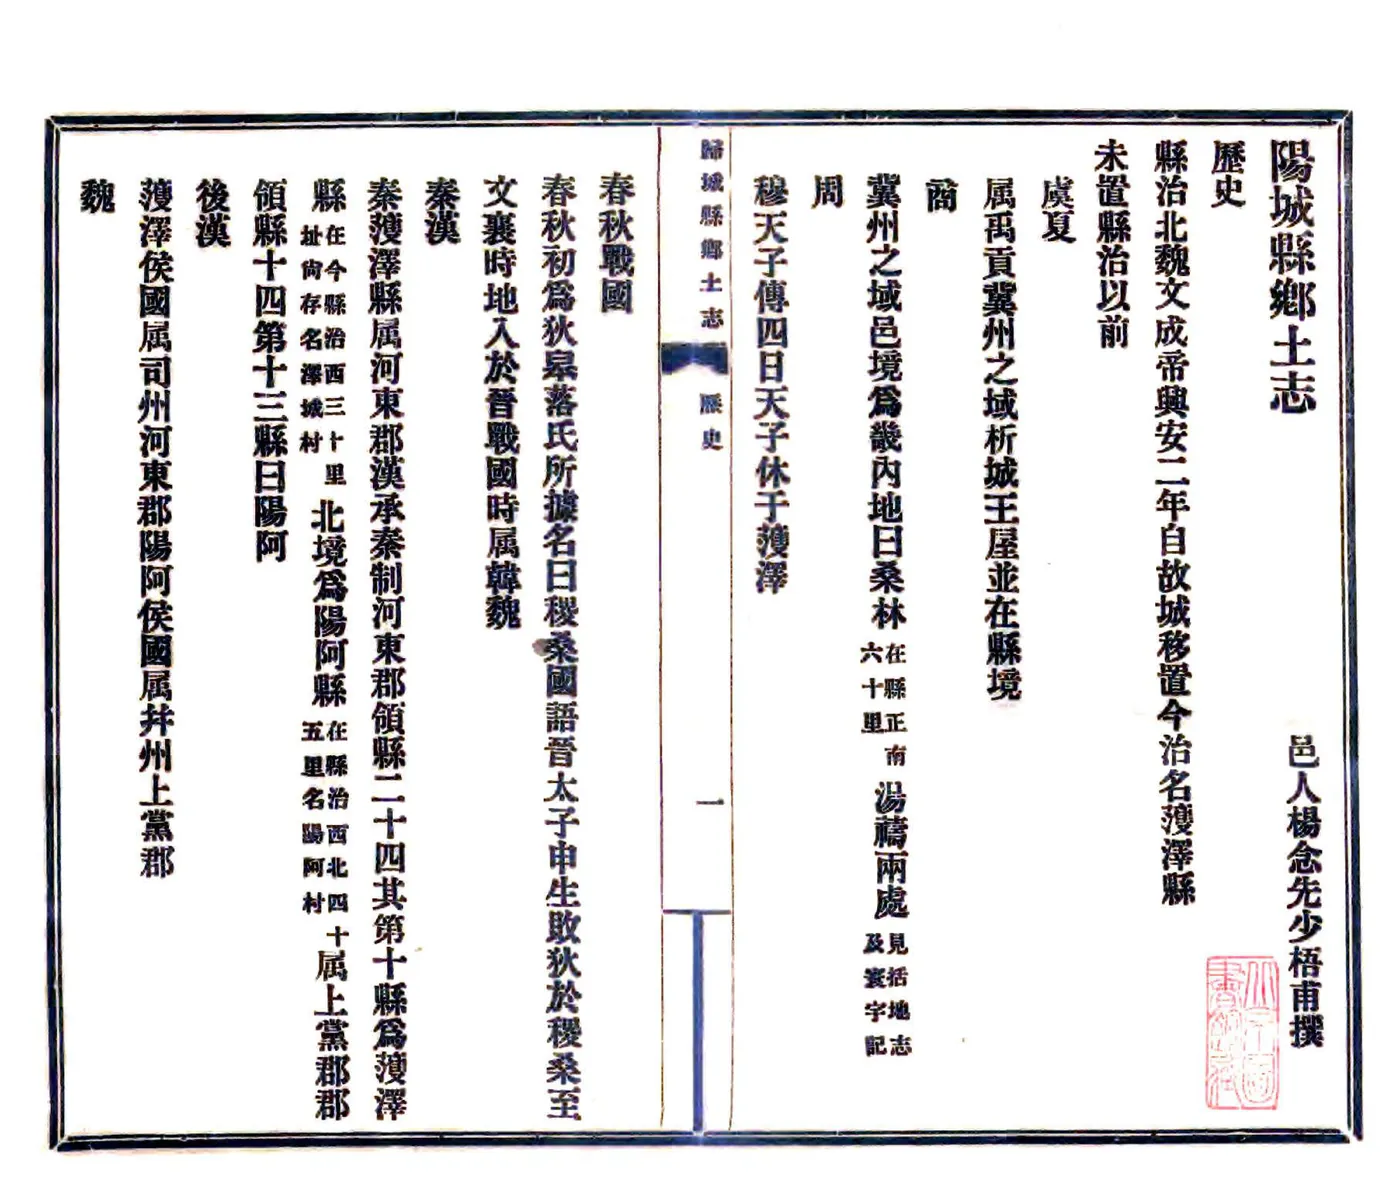 陽城縣鄉土志
邑人楊念先少梧甫撰
歷史
縣治北魏文成帝興安二年自故城移置今治名濩澤縣
未置縣治以前
虞夏
属禹貢冀州之域析城王屋並在縣境
商
冀州之域邑境爲畿內地曰桑林在縣正南六十里湯禱兩處見括地志及寰宇記
周
穆天子傳四日天子休于濩澤
歸城縣鄉土志
歷史
一
春秋戰國
春秋初爲狄皋落氏所據名曰稷桑國語晉太子申生敗狄於稷桑至
文襄時地入於晉戰國時属韓魏
秦漢
秦濩澤縣属河東郡漢承秦制河東郡領縣二十四其第十縣爲濩澤
縣在今縣治西三十里址尙存名澤城村北境爲陽阿縣在縣治西北四十五里名陽阿村属上黨郡郡
領縣十四第十三縣曰陽阿
後漢
濩澤侯國属司州河東郡陽阿侯國属幷州上黨郡
魏